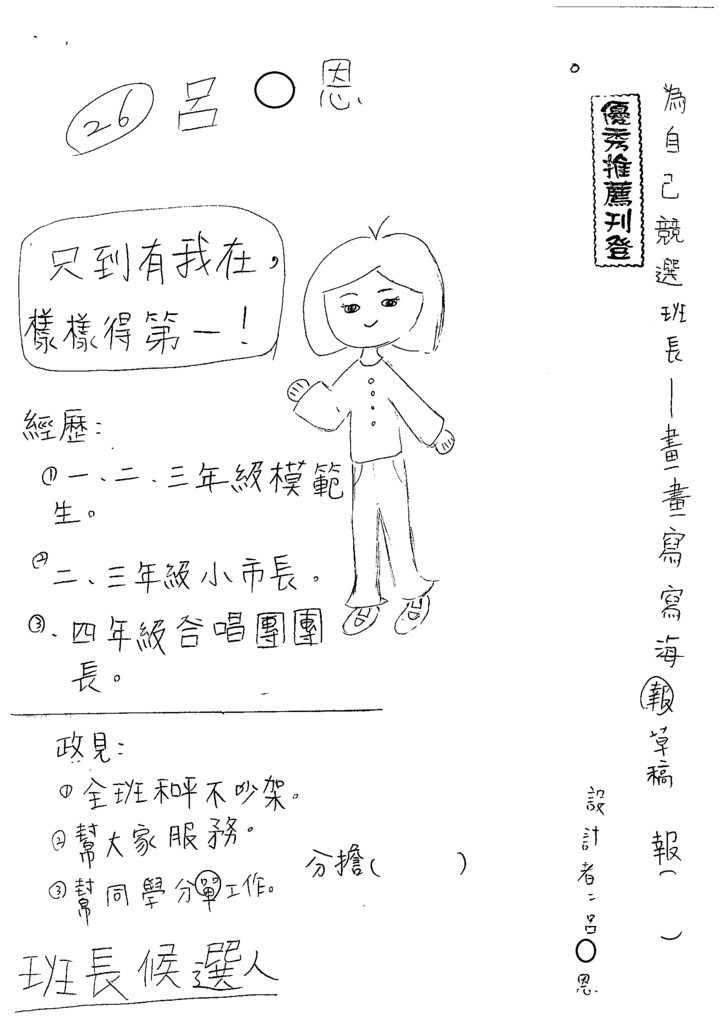 為自己競選班長—畫畫寫寫海報草稿 報( )
優秀推薦刊登
設計者:呂○恩
26 呂○恩
只到有我在,
樣樣得第一!
經歷:
①一、二、三年級模範
生。
②二、三年級小市長。
③、四年級合唱團團
長。
政見:
①全班和平不吵架。
②幫大家服務。
③幫同學分單工作。
分擔( )
班長候選人